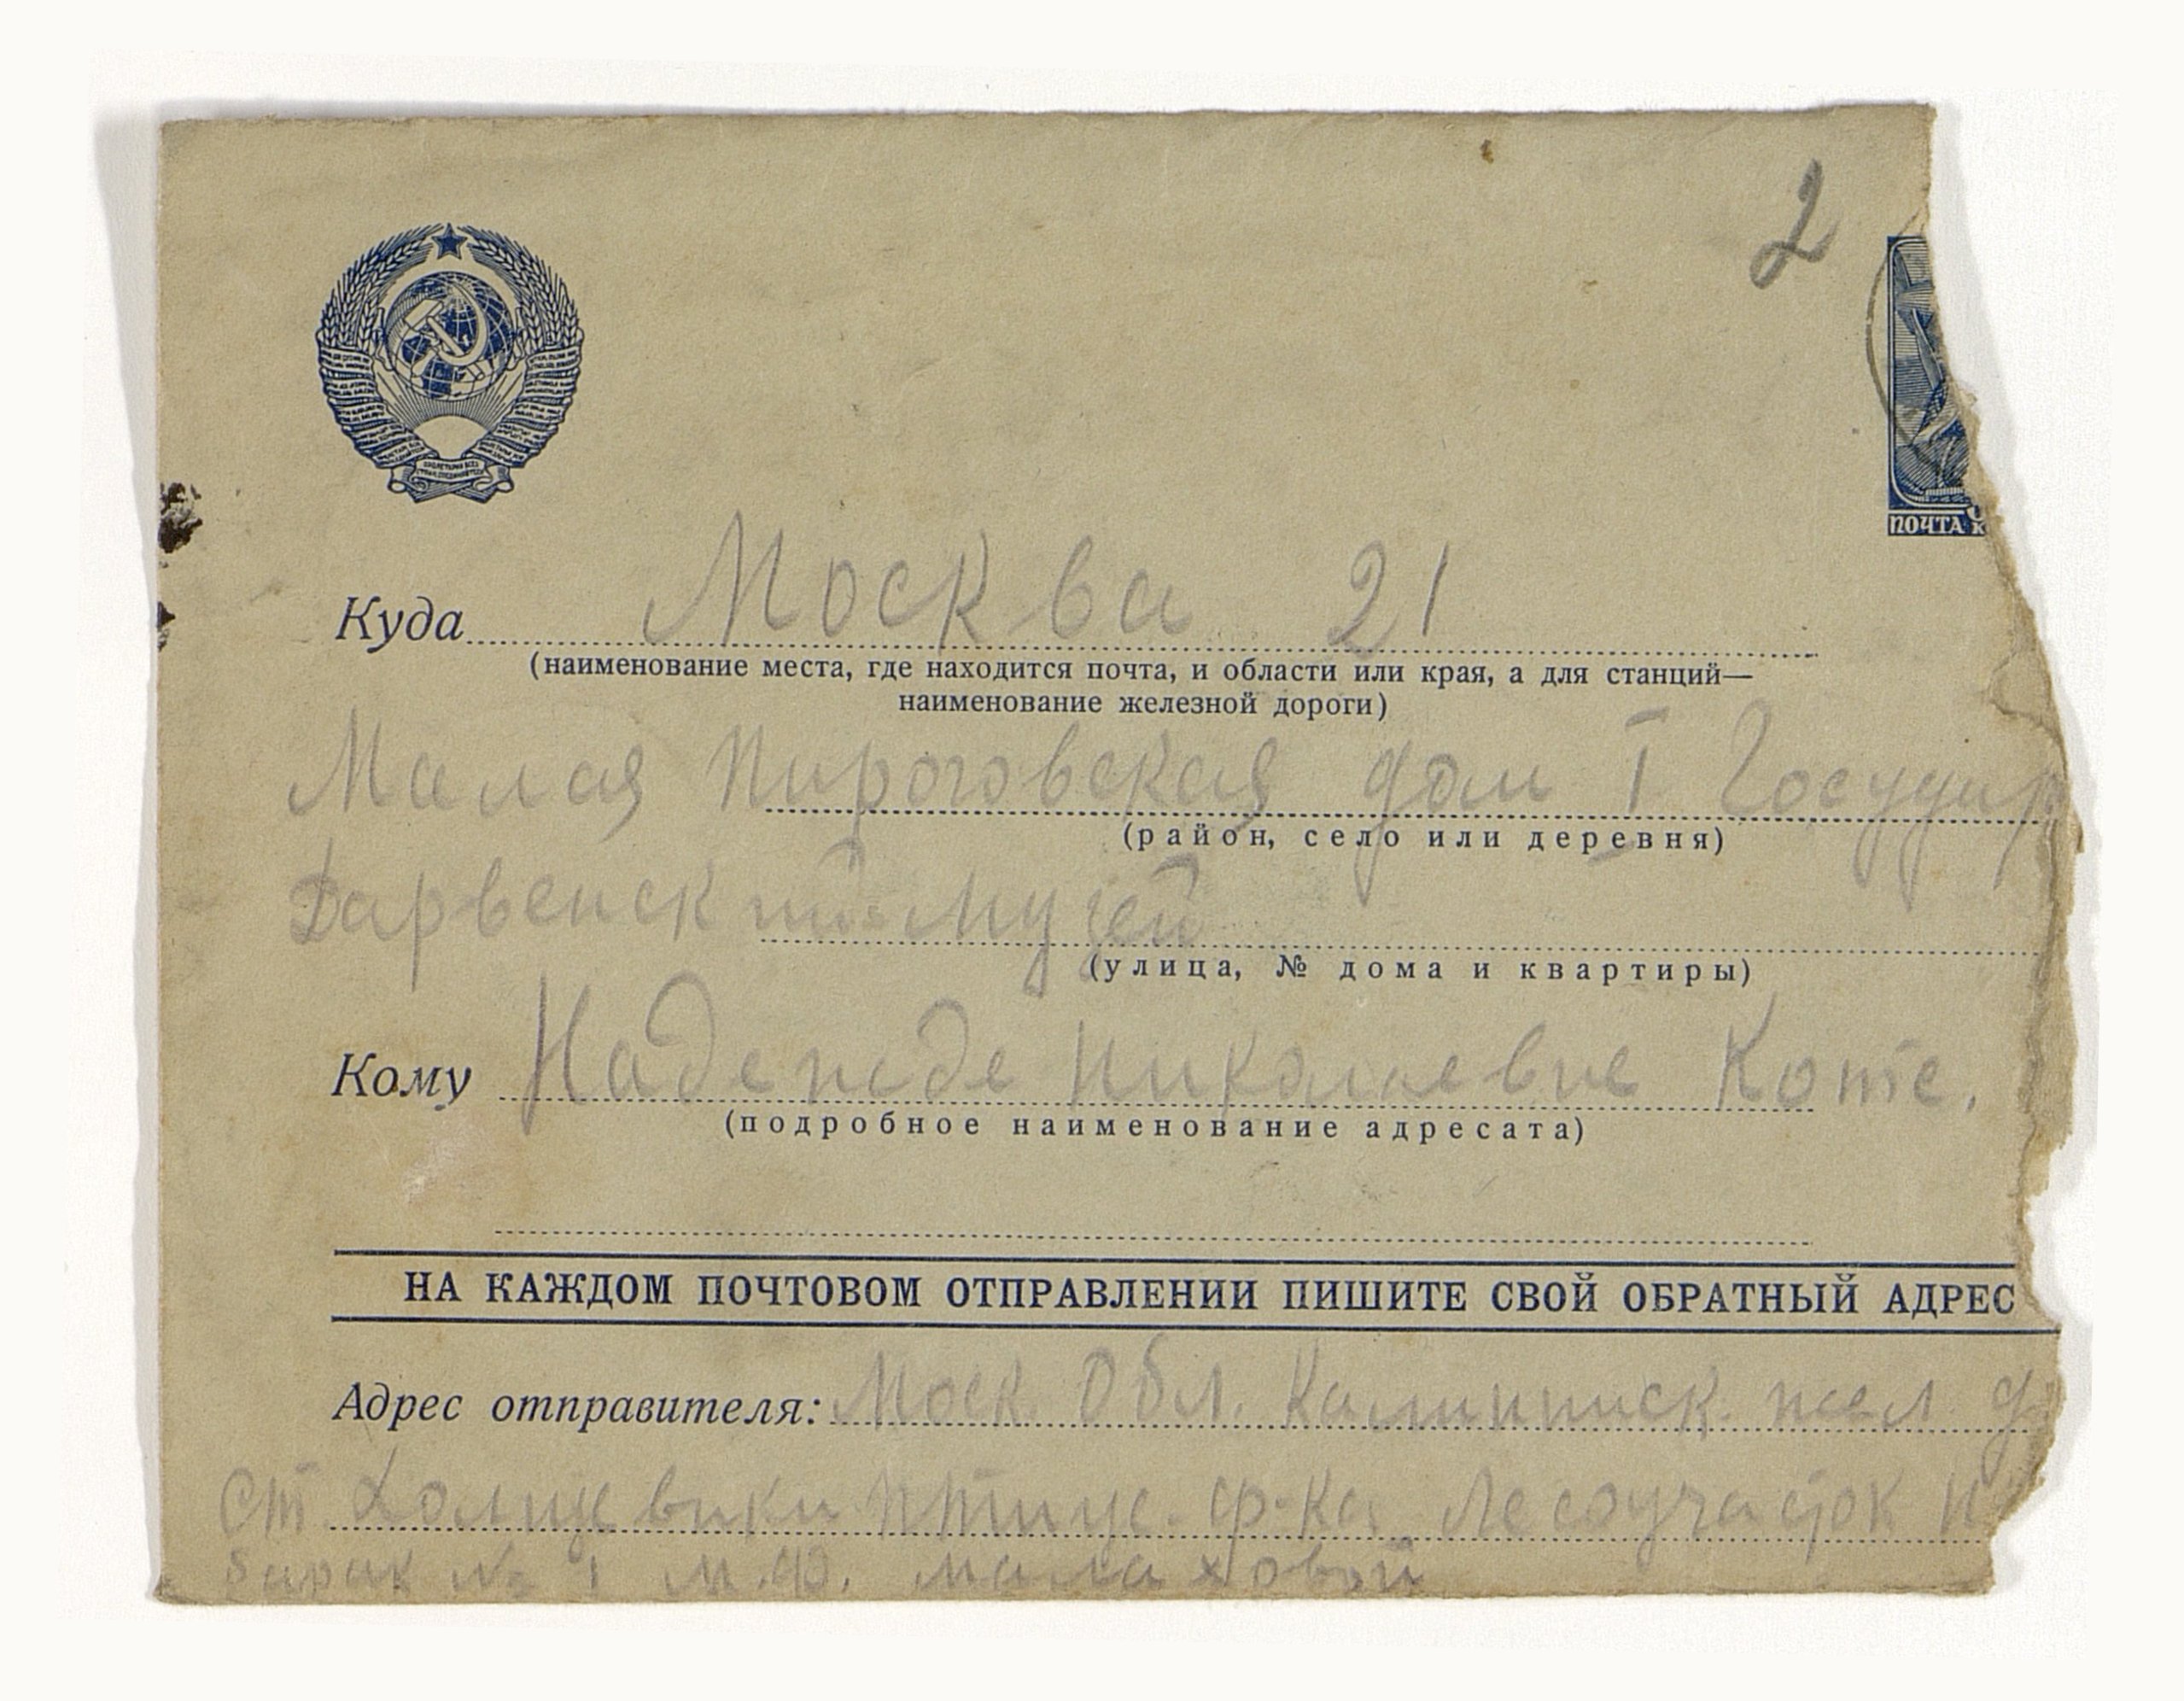 2
ПОЧТА К
Куда Москва 21
(наименование места, где находится почта, и области или края, а для станций—
наименование железной дороги)
Малая Пироговская дом 1 Государ
(район, село или деревня)
Дарвенский Музей
(улица, № дома и квартиры)
Кому Надежде Николаевне Котс.
(подробное наименование адресата)
НА КАЖДОМ ПОЧТОВОМ ОТПРАВЛЕНИИ ПИШИТЕ СВОЙ ОБРАТНЫЙ АДРЕС
Адрес отправителя: Моск. Обл. Калининск. жел. д
ст Холщевики Птице. ф-ка Лесоучасток
барак № 1 М.Ф. Малаховой